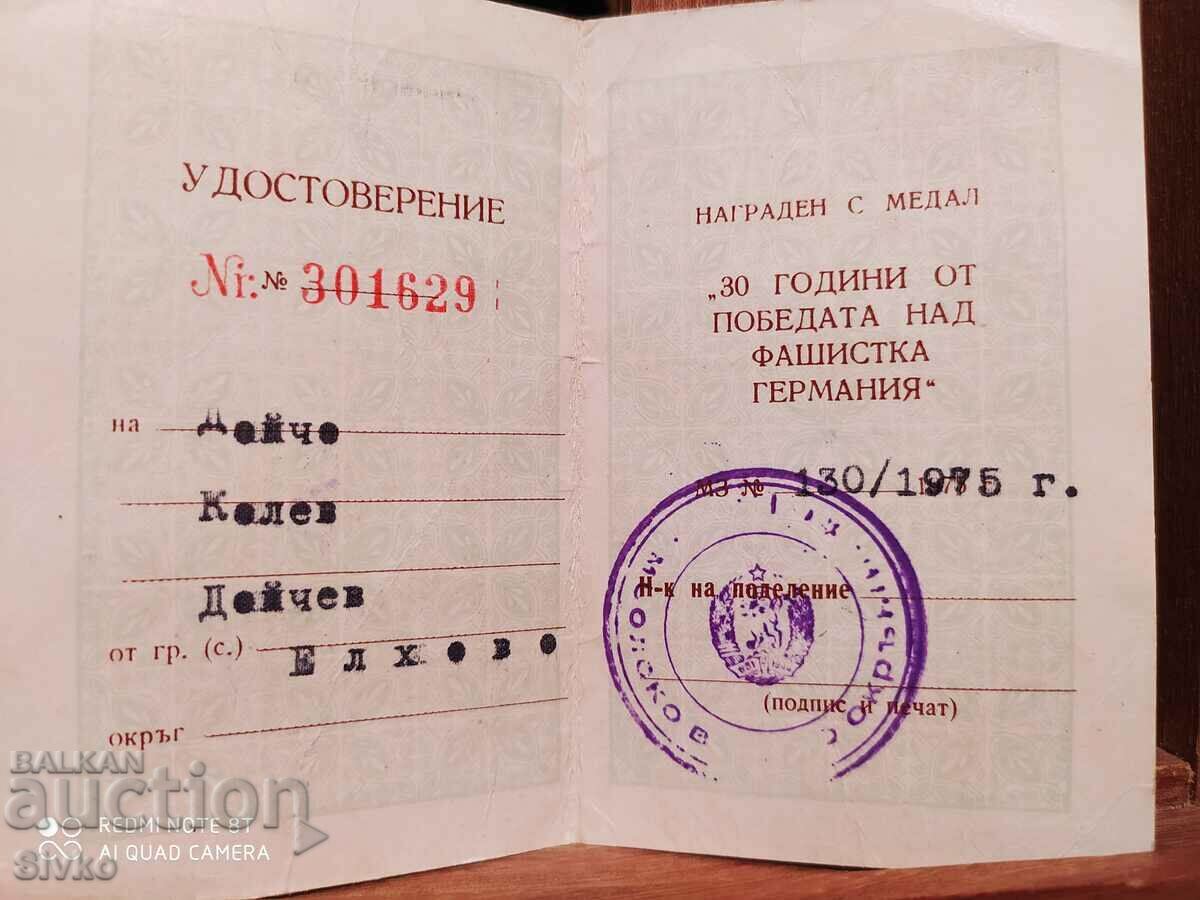 УДОСТОВЕРЕНИЕ
Nr: № 301629
на Дойчо
Колев
Дойчев
от гр. (с.) Елхово
окръг
НАГРАДЕН С МЕДАЛ
„30 ГОДИНИ ОТ
ПОБЕДАТА НАД
ФАШИСТКА
ГЕРМАНИЯ“
МЗ № 130/1975 г.
Н-к на поделение
(подпис и печат)
BALKAN
auction
REDMI NOTE 8T
AI QUAD CAMERA
sivko